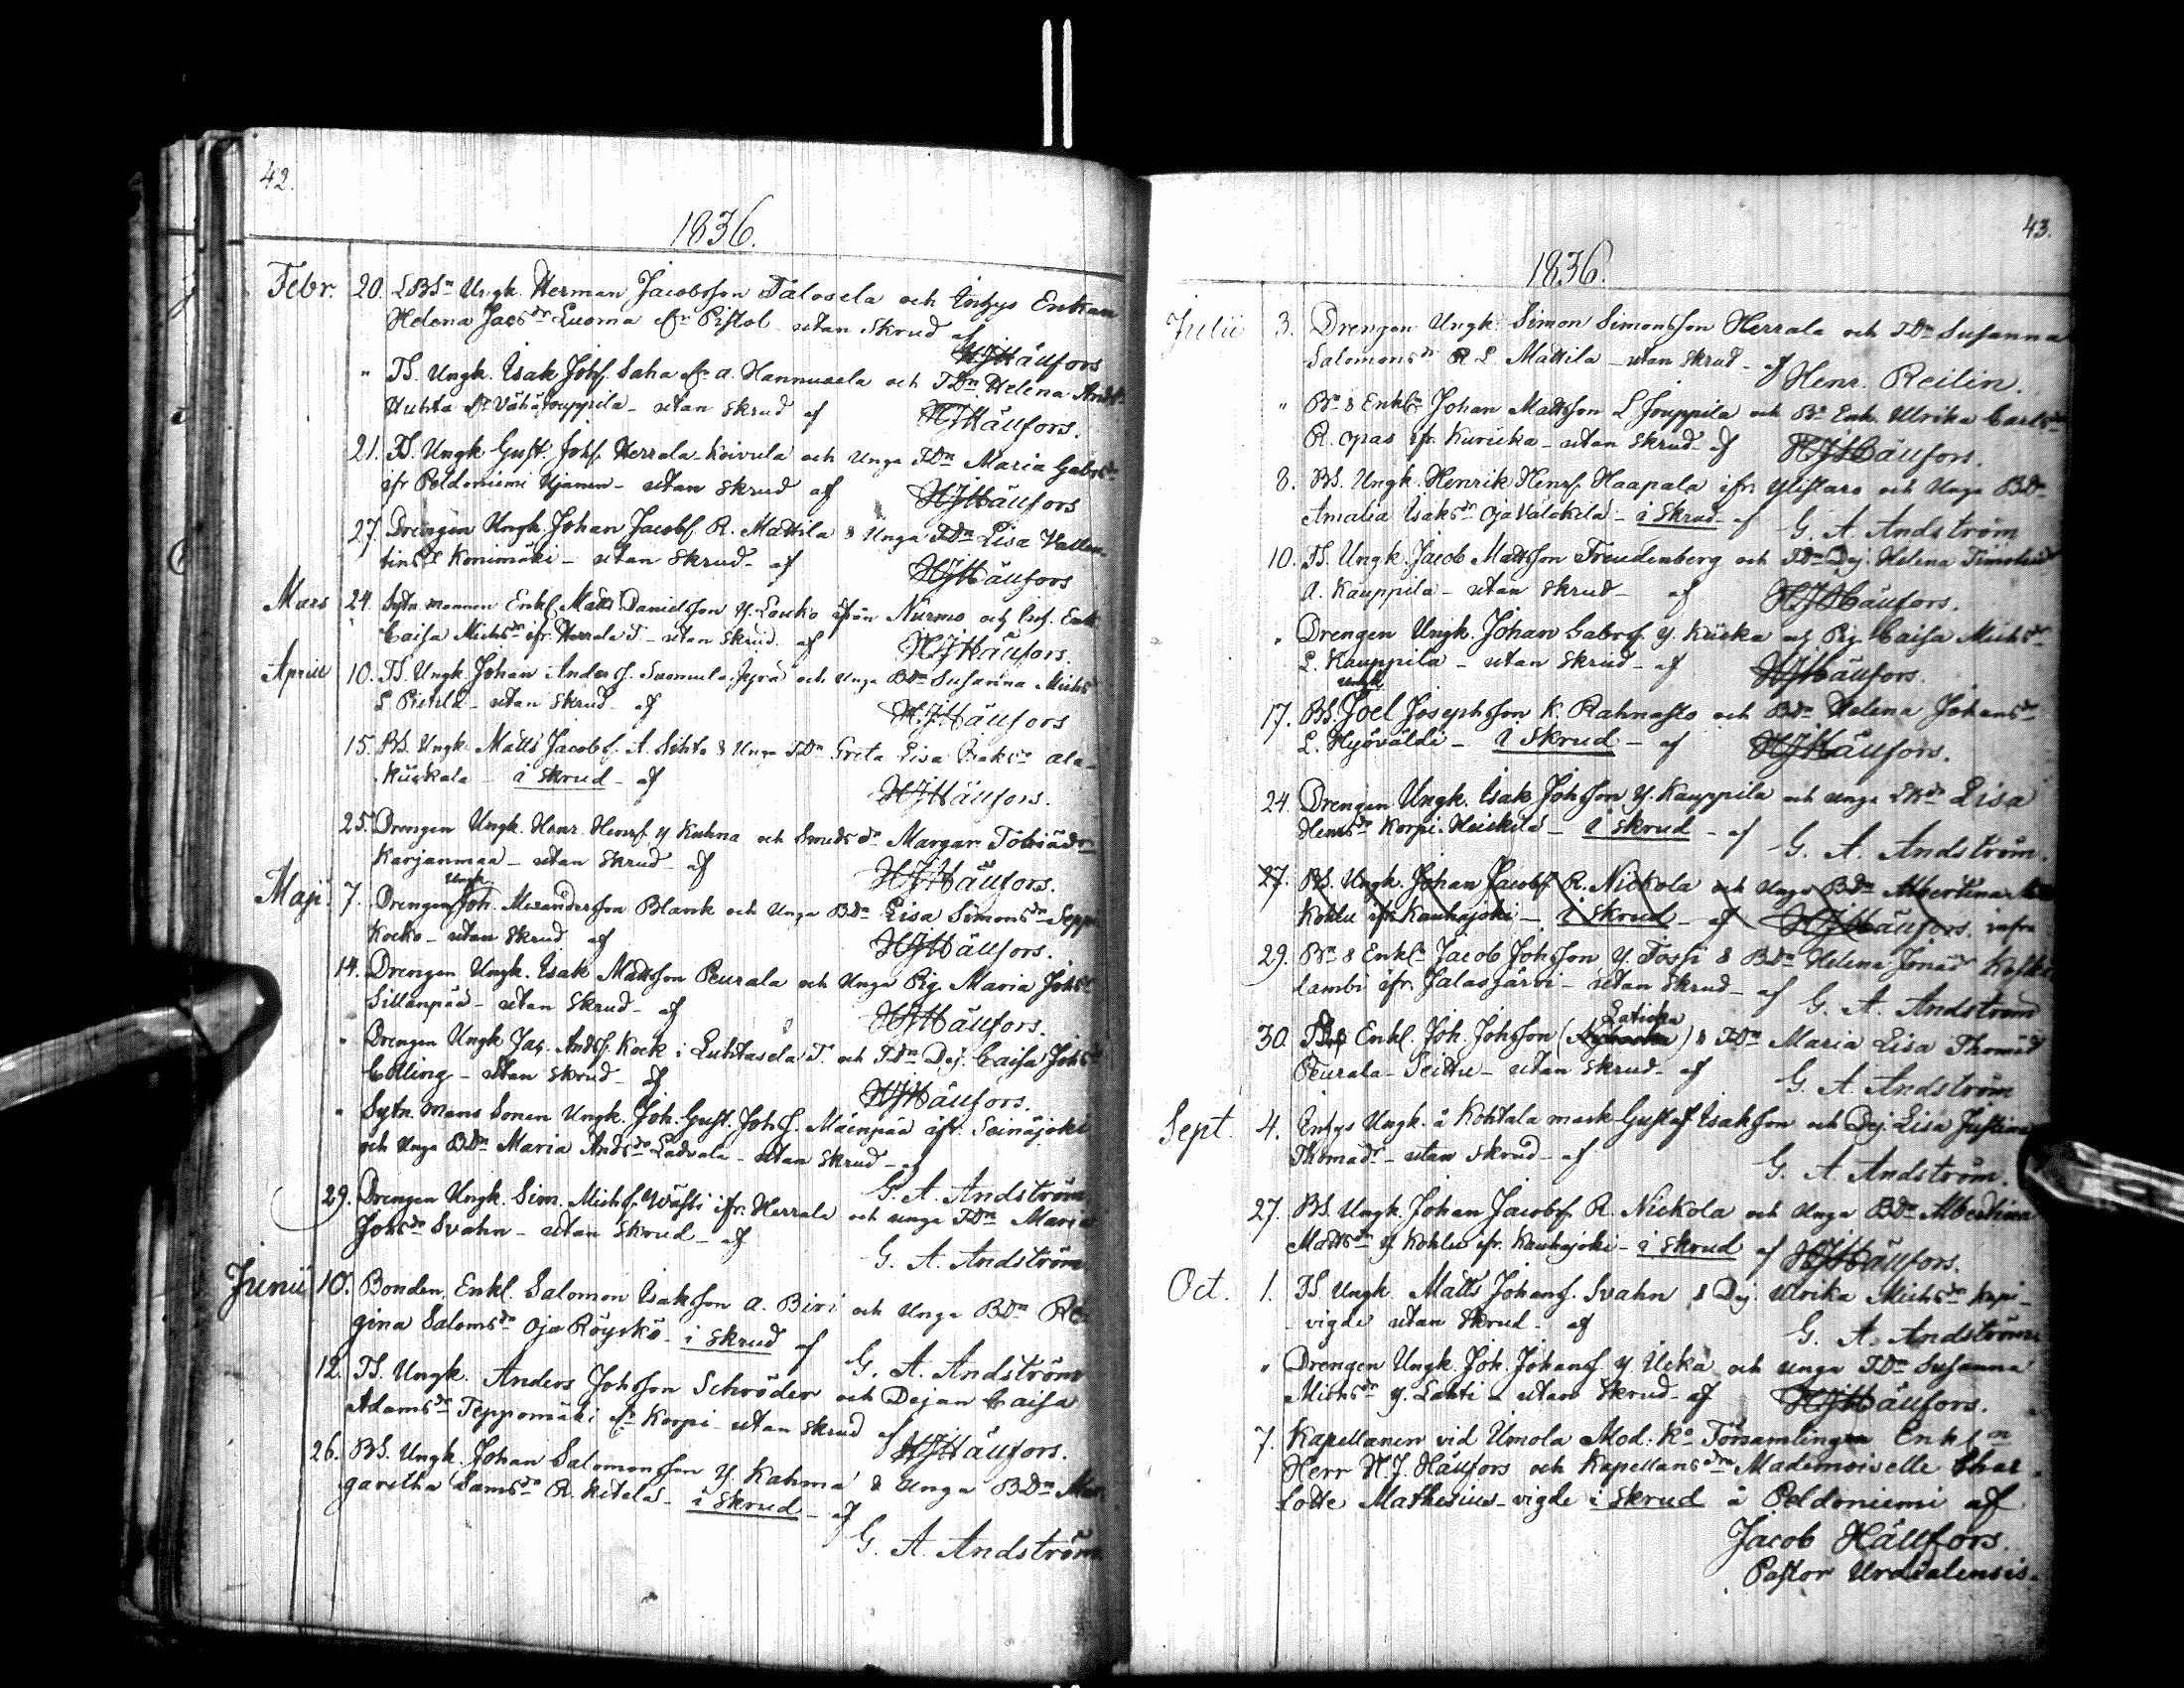 42.
1836.
Febr. 20. LBSn Ungk. Herman Jacobsson Talosela och Enkan
Helena Jacsdr Luoma fr Pistol utan skrud af
HJHällfors
" TS. Ungk. Isak Johs. Saha fr a. Hannuxela och TDn Helena Ands
Huhta fr Vähäjouppila - utan skrud af
HJHällfors.
21. TS. Ungk Gust. Johs. Herrala Koivula och Unga TDn Maria Gabrs
ifr Peldoniemi Ujanen - utan skrud af
HJHällfors
27. Drengen Ungk. Johan Jacobs. R. Mattila & Unga TDn Lisa Vallen-
tinsdr Konimäki - utan skrud - af
HJHällfors
Mars 24. Sytn. mannen Enkl. Matts Danielsson Y. Louko ifrån Nurmo och Enk.
Caisa Michsdr ifr. Herrala T. - utan skrud. af
HJHällfors.
April 10. TS. Ungk Johan Anders s. Suomula Jyrä och Unga BDn Susanna Michs
L Pietilä - utan skrud - af
HJHällfors
15. BS. Ungk. Matts Jacobs. A. Sihto & Unga TDn Greta Lisa Isaksdr Ala-
Kuukala - i skrud - af
HJHällfors.
25. Drengen Ungk. Henr. Henrs. Y Kuhna och Smedsdn Margar. Tobiädr
Karjanmaa - utan skrud - af
HJHällfors.
Ungk.
Maji. 7. Drengen Joh. Alexandersson Blank och Unga BDn Lisa Simonsdr Sepp
Kocko - utan skrud af
HJHällfors.
14. Drengen Ungk. Isak Mattsson Peurala och Unga Pig. Maria Johsdr
Sillanpää - utan skrud - af
HJHällfors.
" Drengen Ungk Jac. Ands. Kock i Luhtasela T. och TDn Dej. Caisa Johs
Colling - utan skrud - af
HJHällfors.
" Sytn. Mans Sonen Ungk. Joh. Gust. Johs. Mäenpää ifr. Seinäjoki
och Unga BDn Maria Andsdr Ladvala - utan skrud - af
G. A. Andström
29. Drengen Ungk. Sim. Michs. Wästi ifr. Herrala och unga TDn Maria
Johsdr Svahn - utan skrud - af
G. A. Andström
Junii 10. Bonden, Enkl. Salomon Isaksson A. Biri och Unga BDn Re-
gina Salomsdr Oja Röyskö - i skrud af
G. A. Andström
12. TS. Ungk. Anders Johsson Schröder och Dejan Caisa
Adamsdr Teppomäki fr Korpi - utan skrud af
HJHällfors.
26. BS. Ungk. Johan Salomonsson Y. Kahma & Unga BDn Mar
garetha Samsdr R. Kitola - i skrud - af
G. A. Andström
43.
1836.
Julii 3. Drengen Ungk. Simon Simonsson Herrala och TDn Susanna
Salomonsdr R L. Mattila - utan skrud - af Henr. Reilin.
" Bn & Enkln Johan Mattsson L Jouppila och Bn Enk. Ulrika Carls
R. opas ifr. Kurikka - utan skrud - af HJHällfors.
8. BS. Ungk. Henrik Henrs. Haapala ifr. Ylistaro och Unga BDn
Amalia Isaksdr Oja Välokila - i skrud - af G. A. Andström
10. TS. Ungk. Jacob Mattsson Freudenberg och TDn Dej. Helena Timotheid
A. Kauppila - utan skrud - af HJHällfors.
" Drengen Ungk. Johan Gabrs. Y. Kiska och Pig. Caisa Michsdr
L. Kauppila - utan skrud - af HJHällfors.
Ungk.
17. BS. Joel Josephsson K. Rahnasto och BDn Helena Johansdr
L. Hyöväldi - i skrud - af HJHällfors.
24. Drengen Ungk. Isak Johsson Y. Kauppila och unga Lisa
Henrsdr Korpi Heickilä - i skrud - af G. A. Andström.
27. BS. Ungk. Johan Jacobs. R. Nickola och Unga BDn Albertina
Kohlu ifr. Kauhajoki - i skrud - af HJHällfors. infra
29. Bn & Enkln Jacob Johsson Y. Tossi & BDn Helena Jonädr Koski
lambi ifr. Jalasjärvi - utan skrud - af G. A. Andström
Laticka
30. Enkl. Joh. Johsson () & TDn Maria Lisa Thomäd
Peurala - Seittu - utan skrud - af G. A. Andström
Sept. 4. Ungk. å Kohtala mark Gustaf Isaksson och Dej. Lisa Justina
Thomädr - utan skrud - af G. A. Andström.
27. BS. Ungk. Johan Jacobs. R. Nickola och Unga BDn Albertina
Mattsdr Y Kohlu ifr. Kauhajoki - i skrud af HJHällfors.
Oct. 1. TS Ungk. Matts Johans. Svahn & Dej. Ulrika Michsdr Korpi -
- vigde utan skrud - af G. A. Andström
" Drengen Ungk. Joh. Johans. Y Ucka och unga TDn Susanna
Michsdr Y. Lahti - utan skrud - af HJHällfors.
7. Kapellanen vid Umola Mod: Ko Församlingen Enklm
Herr H. J. Hällfors och Kapellansdrn Mademoiselle Char-
lotte Mathesius - vigde i skrud å Peldoniemi af
Jacob Hällfors.
Pastor Urdialensis.